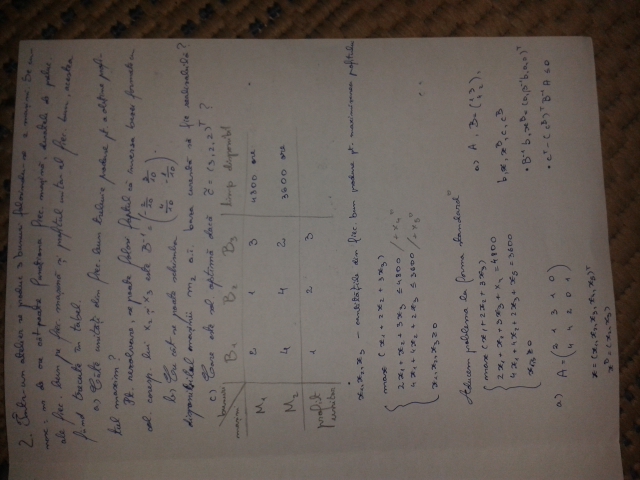 2. Într-un atelier se produc 3 bunuri folosindu-se 2 mașini. Se
nr. de ore cât poate funcționa fiec. mașină, duratele de
ale fiec. bun pe fiec. mașină și profitul unitar al fiec. bun, acestea
fiind trecute în tabel.
a) Câte unități din fiec. bun trebuie produse pt. a obține profi-
tul maxim?
Pt. rezolvare, se poate folosi faptul că inversa bazei formate cu
col. coresp. lui x2 și x3 este B⁻¹ = (-2/10 3/10
4/10 -1/10).
b) Cu cât se poate schimba
disponibilul mașinii m2 a.î. baza curentă să fie realizabilă?
c) Care este sol. optimă dacă c̃ = (3,2,2)ᵀ ?
bunuri
mașini B1 B2 B3 timp disponibil
M1 2 1 3 4800 ore
M2 4 4 2 3600 ore
profit 1 2 3
unitar
x1,x2,x3 – cantitățile din fiec. bun produse pt. maximizarea profitului
max (x1 + 2x2 + 3x3)
2x1 + x2 + 3x3 ≤ 4800 /+x4"
4x1 + 4x2 + 2x3 ≤ 3600 /+x5"
x1,x2,x3 ≥ 0
Aducem problema la forma standard"
max (x1 + 2x2 + 3x3)
2x1 + x2 + 3x3 + x4 = 4800
4x1 + 4x2 + 2x3 + x5 = 3600
≥ 0
a) A = (2 1 3 1 0
4 4 2 0 1)
x = (x1, x2, x3, x4, x5)ᵀ
xᴮ = (x2, x3)
a) A, B = (1 3
4 2),
b, x, xᴮ, c, cᴮ
• cᵀ - (cᴮ)ᵀ B⁻¹ A ≤ 0